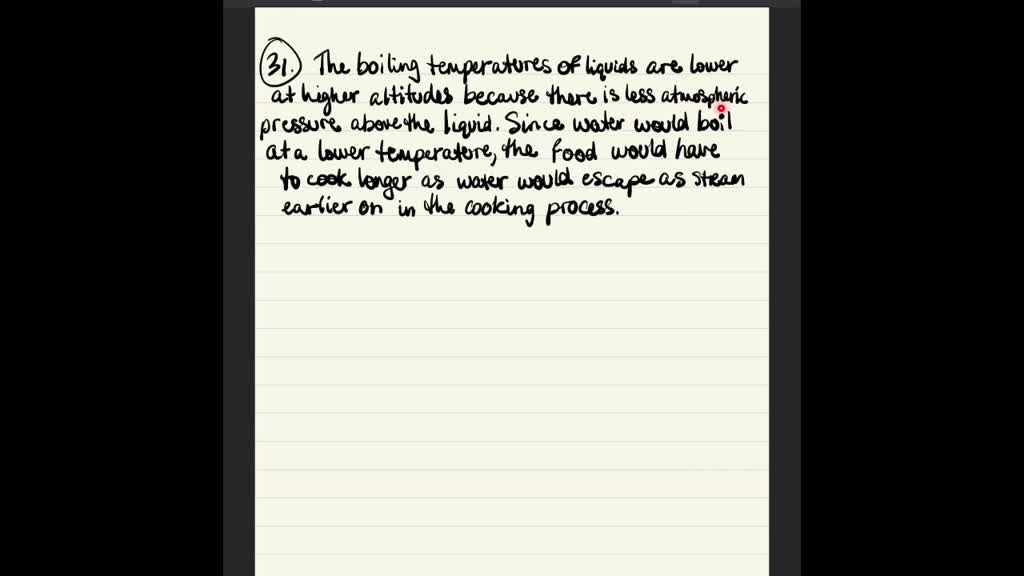 31. The boiling temperatures of liquids are lower
at higher altitudes because there is less atmospheric
pressure above the liquid. Since water would boil
at a lower temperature, the food would have
to cook longer as water would escape as steam
earlier on in the cooking process.